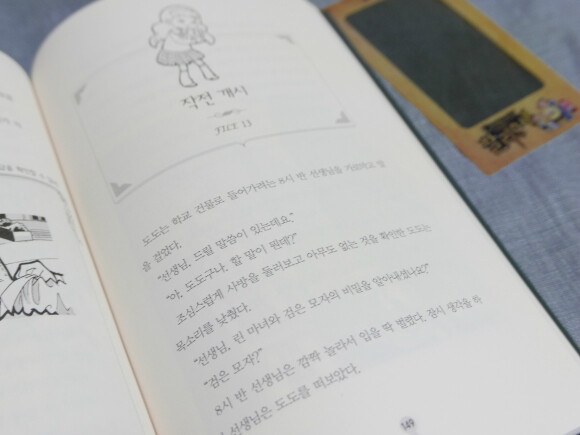 작전 개시
도도는 학교 건물로 들어가려는 8시 반 선생님을 가로막고 말
을 걸었다.
"선생님, 드릴 말씀이 있는데요."
"아, 도도구나, 할 말이 뭔데?"
조심스럽게 사방을 둘러보고 아무도 없는 것을 확인한 도도는
목소리를 낮췄다.
"선생님, 린 마녀와 검은 모자의 비밀을 알아내셨나요?"
"검은 모자?"
8시 반 선생님은 깜짝 놀라서 입을 딱 벌렸다. 잠시 생각을 하
선생님은 도도를 떠보았다.
149